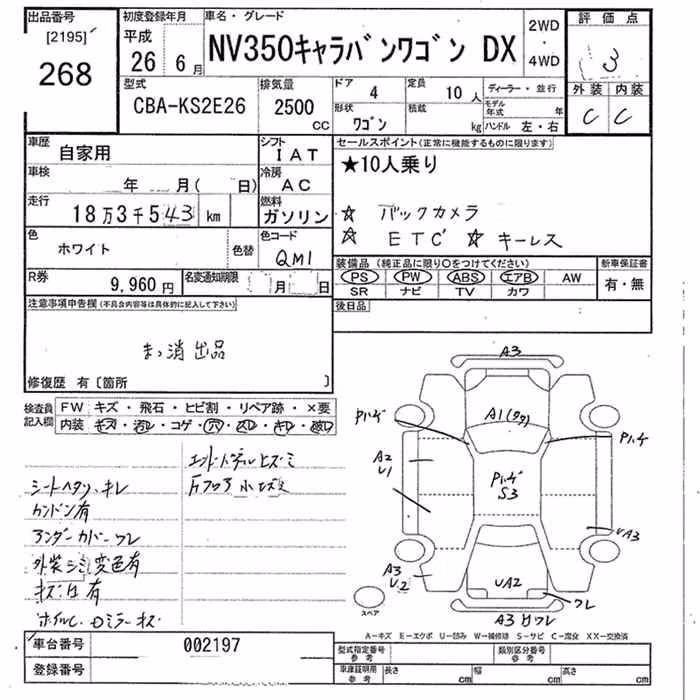 出品番号
[2195]
268
初度登録年月
平成
26 6月
車名・グレード
NV350キャラバンワゴン DX
2WD
・
4WD
評価点
3
型式
CBA-KS2E26
排気量
2500
CC
ドア
4
定員
10人
ディーラー・並行
形状
ワゴン
積載
kg
モデル年式
年
ハンドル 左・右
外装 内装
C C
車歴
自家用
シフト
IAT
セールスポイント(正常に機能するものに限ります)
★10人乗り
☆ バックカメラ
☆ ETC ☆ キーレス
車検
年 月( 日)
冷房
AC
走行
18万3千543 km
燃料
ガソリン
色
ホワイト
色替
色コード
QM1
R券
9,960円
名変通知期限
月 日
装備品(純正品に限り○をつけてください)
PS PW ABS エアB AW
SR ナビ TV カワ
新車保証書
有・無
後日品
注意事項申告欄(不具合内容等は具体的に記入して下さい)
まっ消出品
修復歴 有〔箇所 〕
検査員
記入欄
FW キズ・飛石・ヒビ割・リペア跡・×要
内装 キズ・汚レ・コゲ・穴・スレ・キレ・破レ
シートヘタリ・キレ
カンドン有
アンダーカバーワレ
外装シミ変色有
キズ凹有
A3
A1(ワク)
Pハゲ
Pハゲ
A2
U1
Pハゲ
S3
UA3
A3
U2
UA2
ワレ
A3 凹ワレ
スペア
A-キズ E-エクボ U-凹み W-補修跡 S-サビ C-腐食 XX-交換済
車台番号
002197
登録番号
型式指定番号
参考
類別区分番号
参考
車庫証明用
参考
長さ cm
幅 cm
高さ cm